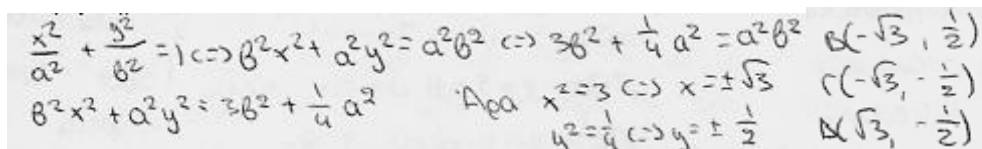 x²/a² + y²/β² = 1 <=> β²x² + a²y² = a²β² <=> 3β² + 1/4 a² = a²β² B(-√3, 1/2)
β²x² + a²y² = 3β² + 1/4 a² Άρα x² = 3 <=> x = ±√3 Γ(-√3, -1/2)
y² = 1/4 <=> y = ± 1/2 Δ(√3, -1/2)